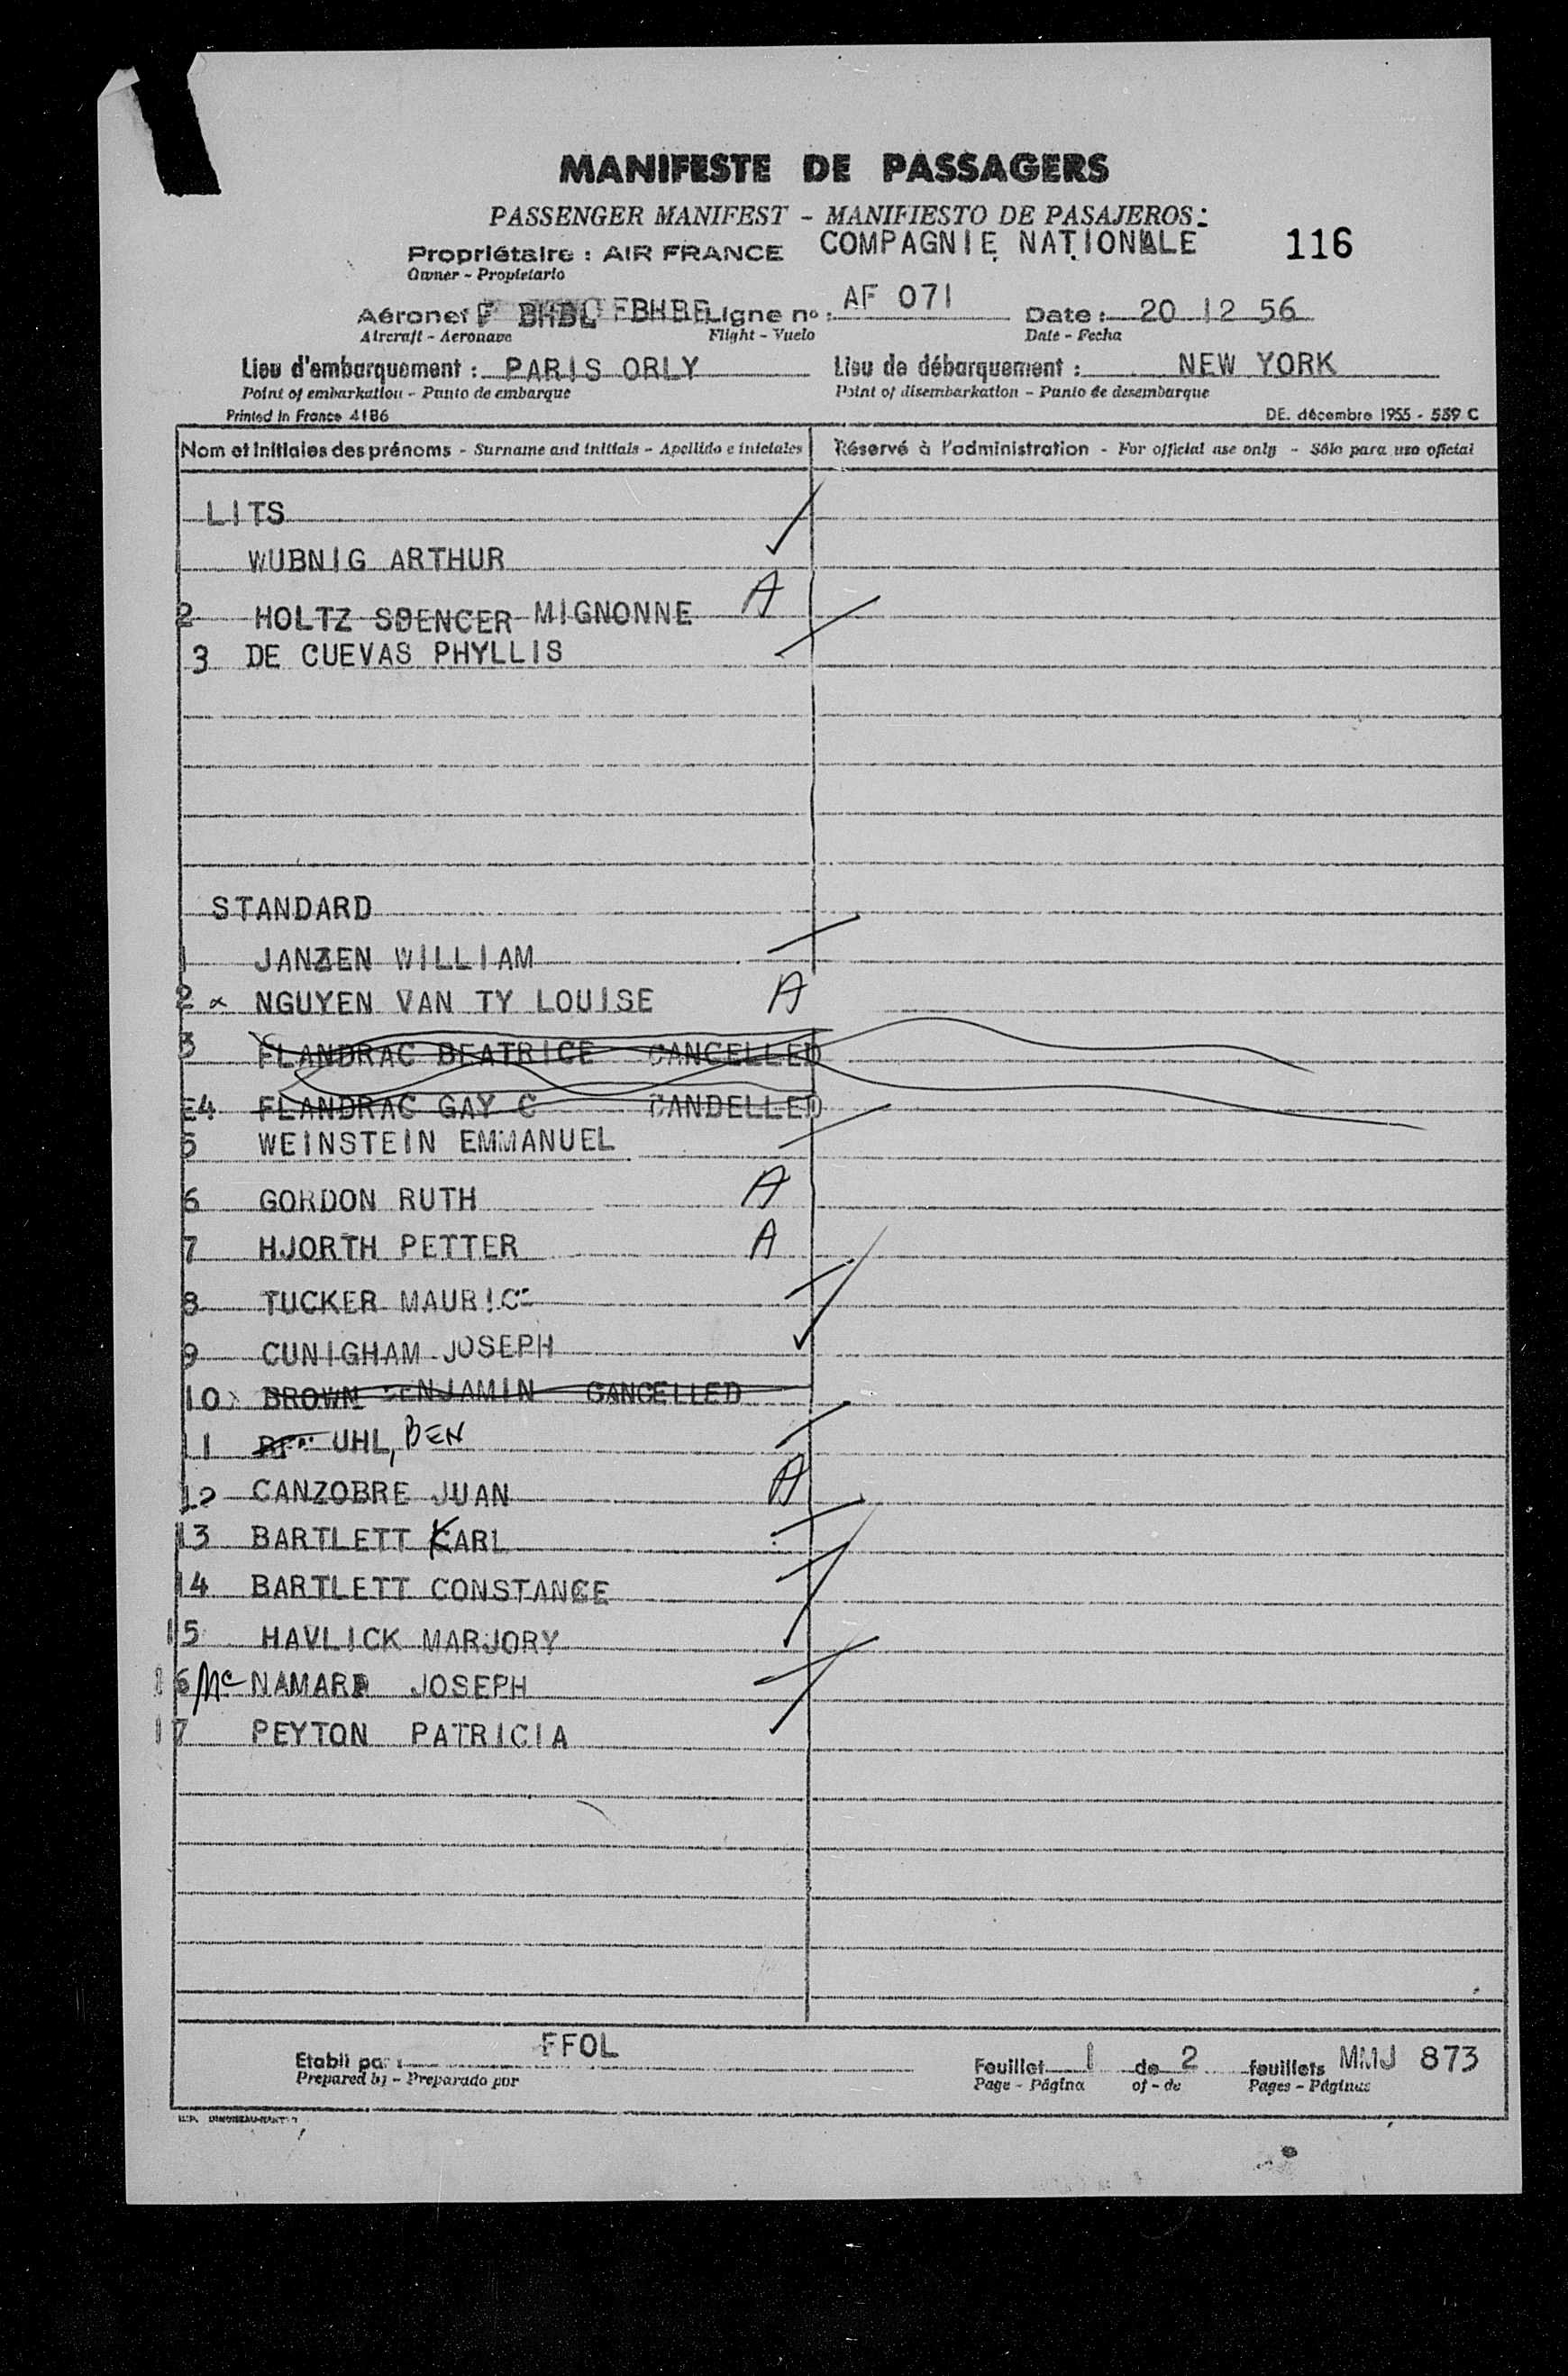 MANIFESTE DE PASSAGERS
PASSENGER MANIFEST - MANIFIESTO DE PASAJEROS:
Propriétaire : AIR FRANCE COMPAGNIE NATIONALE 116
Owner - Propietario
Aéronef F BHBL FBHBE Ligne no : AF 071 Date : 20 12 56
Aircraft - Aeronave Flight - Vuelo Date - Fecha
Lieu d'embarquement : PARIS ORLY Lieu de débarquement : NEW YORK
Point of embarkation - Punto de embarque Point of disembarkation - Punto de desembarque
Printed in France 4186 DE. décembre 1955 - 559 C
Nom et initiales des prénoms - Surname and initials - Apellido e iniciales Réservé à l'administration - For official use only - Sólo para uso oficial
LITS
1 WUBNIG ARTHUR
2 HOLTZ SPENCER MIGNONNE A
3 DE CUEVAS PHYLLIS
STANDARD
1 JANZEN WILLIAM
2 NGUYEN VAN TY LOUISE A
3 FLANDRAC BEATRICE CANCELLED
E4 FLANDRAC GAY C CANDELLED
5 WEINSTEIN EMMANUEL
6 GORDON RUTH A
7 HJORTH PETTER A
8 TUCKER MAURICE
9 CUNIGHAM JOSEPH
10 BROWN BENJAMIN CANCELLED
11 UHL, BEN
12 CANZOBRE JUAN A
13 BARTLETT KARL
14 BARTLETT CONSTANCE
15 HAVLICK MARJORY
16 Mc NAMARA JOSEPH
17 PEYTON PATRICIA
Etabli par : FFOL
Prepared by - Preparado por
Feuillet 1 de 2 feuillets MMJ 873
Page - Página of - de Pages - Páginas